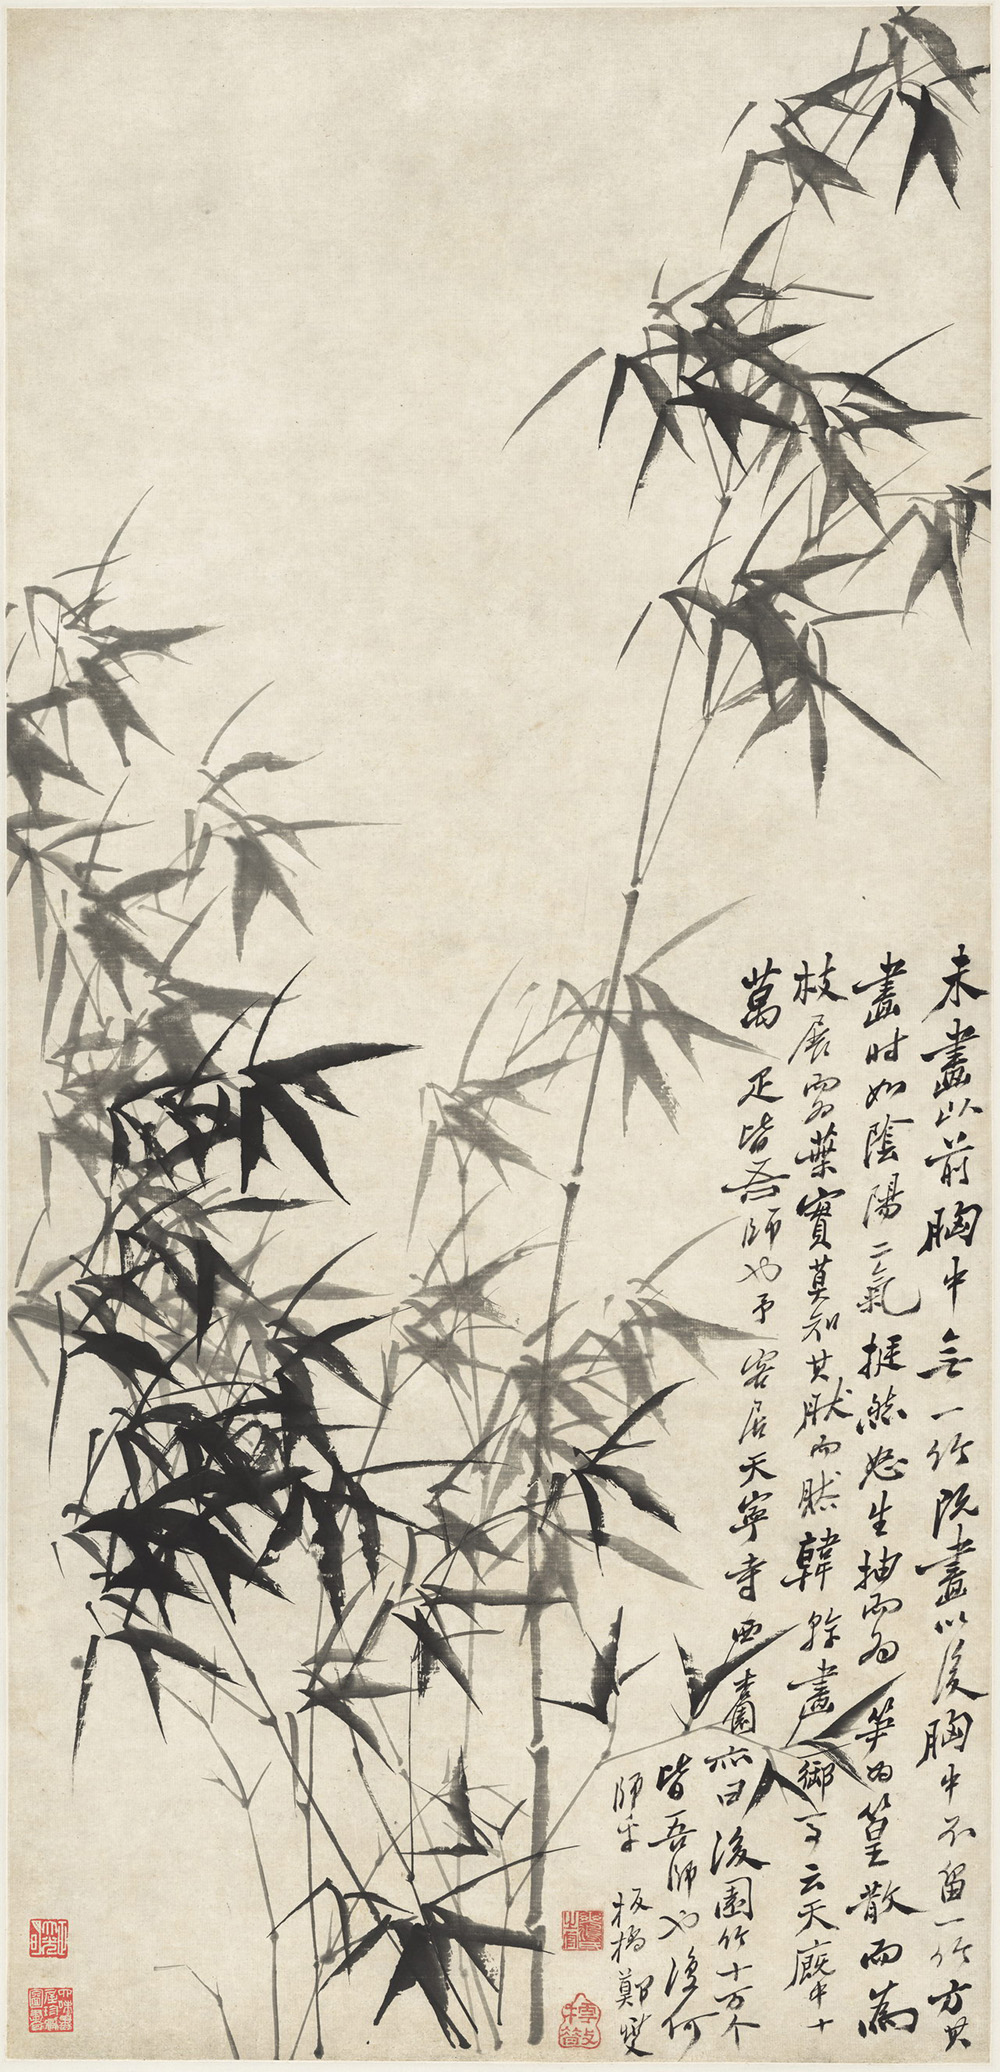 未畫以前胸中無一竹既畫以後胸中不留一竹方其
畫時如陰陽二氣挺然怒生抽而為笋為篁散而為
枝展而為葉實莫知其然而然韓幹畫御馬云天廄中十
萬疋皆吾師也予客居天寧寺西杏園亦曰後園竹十万个
皆吾師也復何
師乎 板橋鄭燮